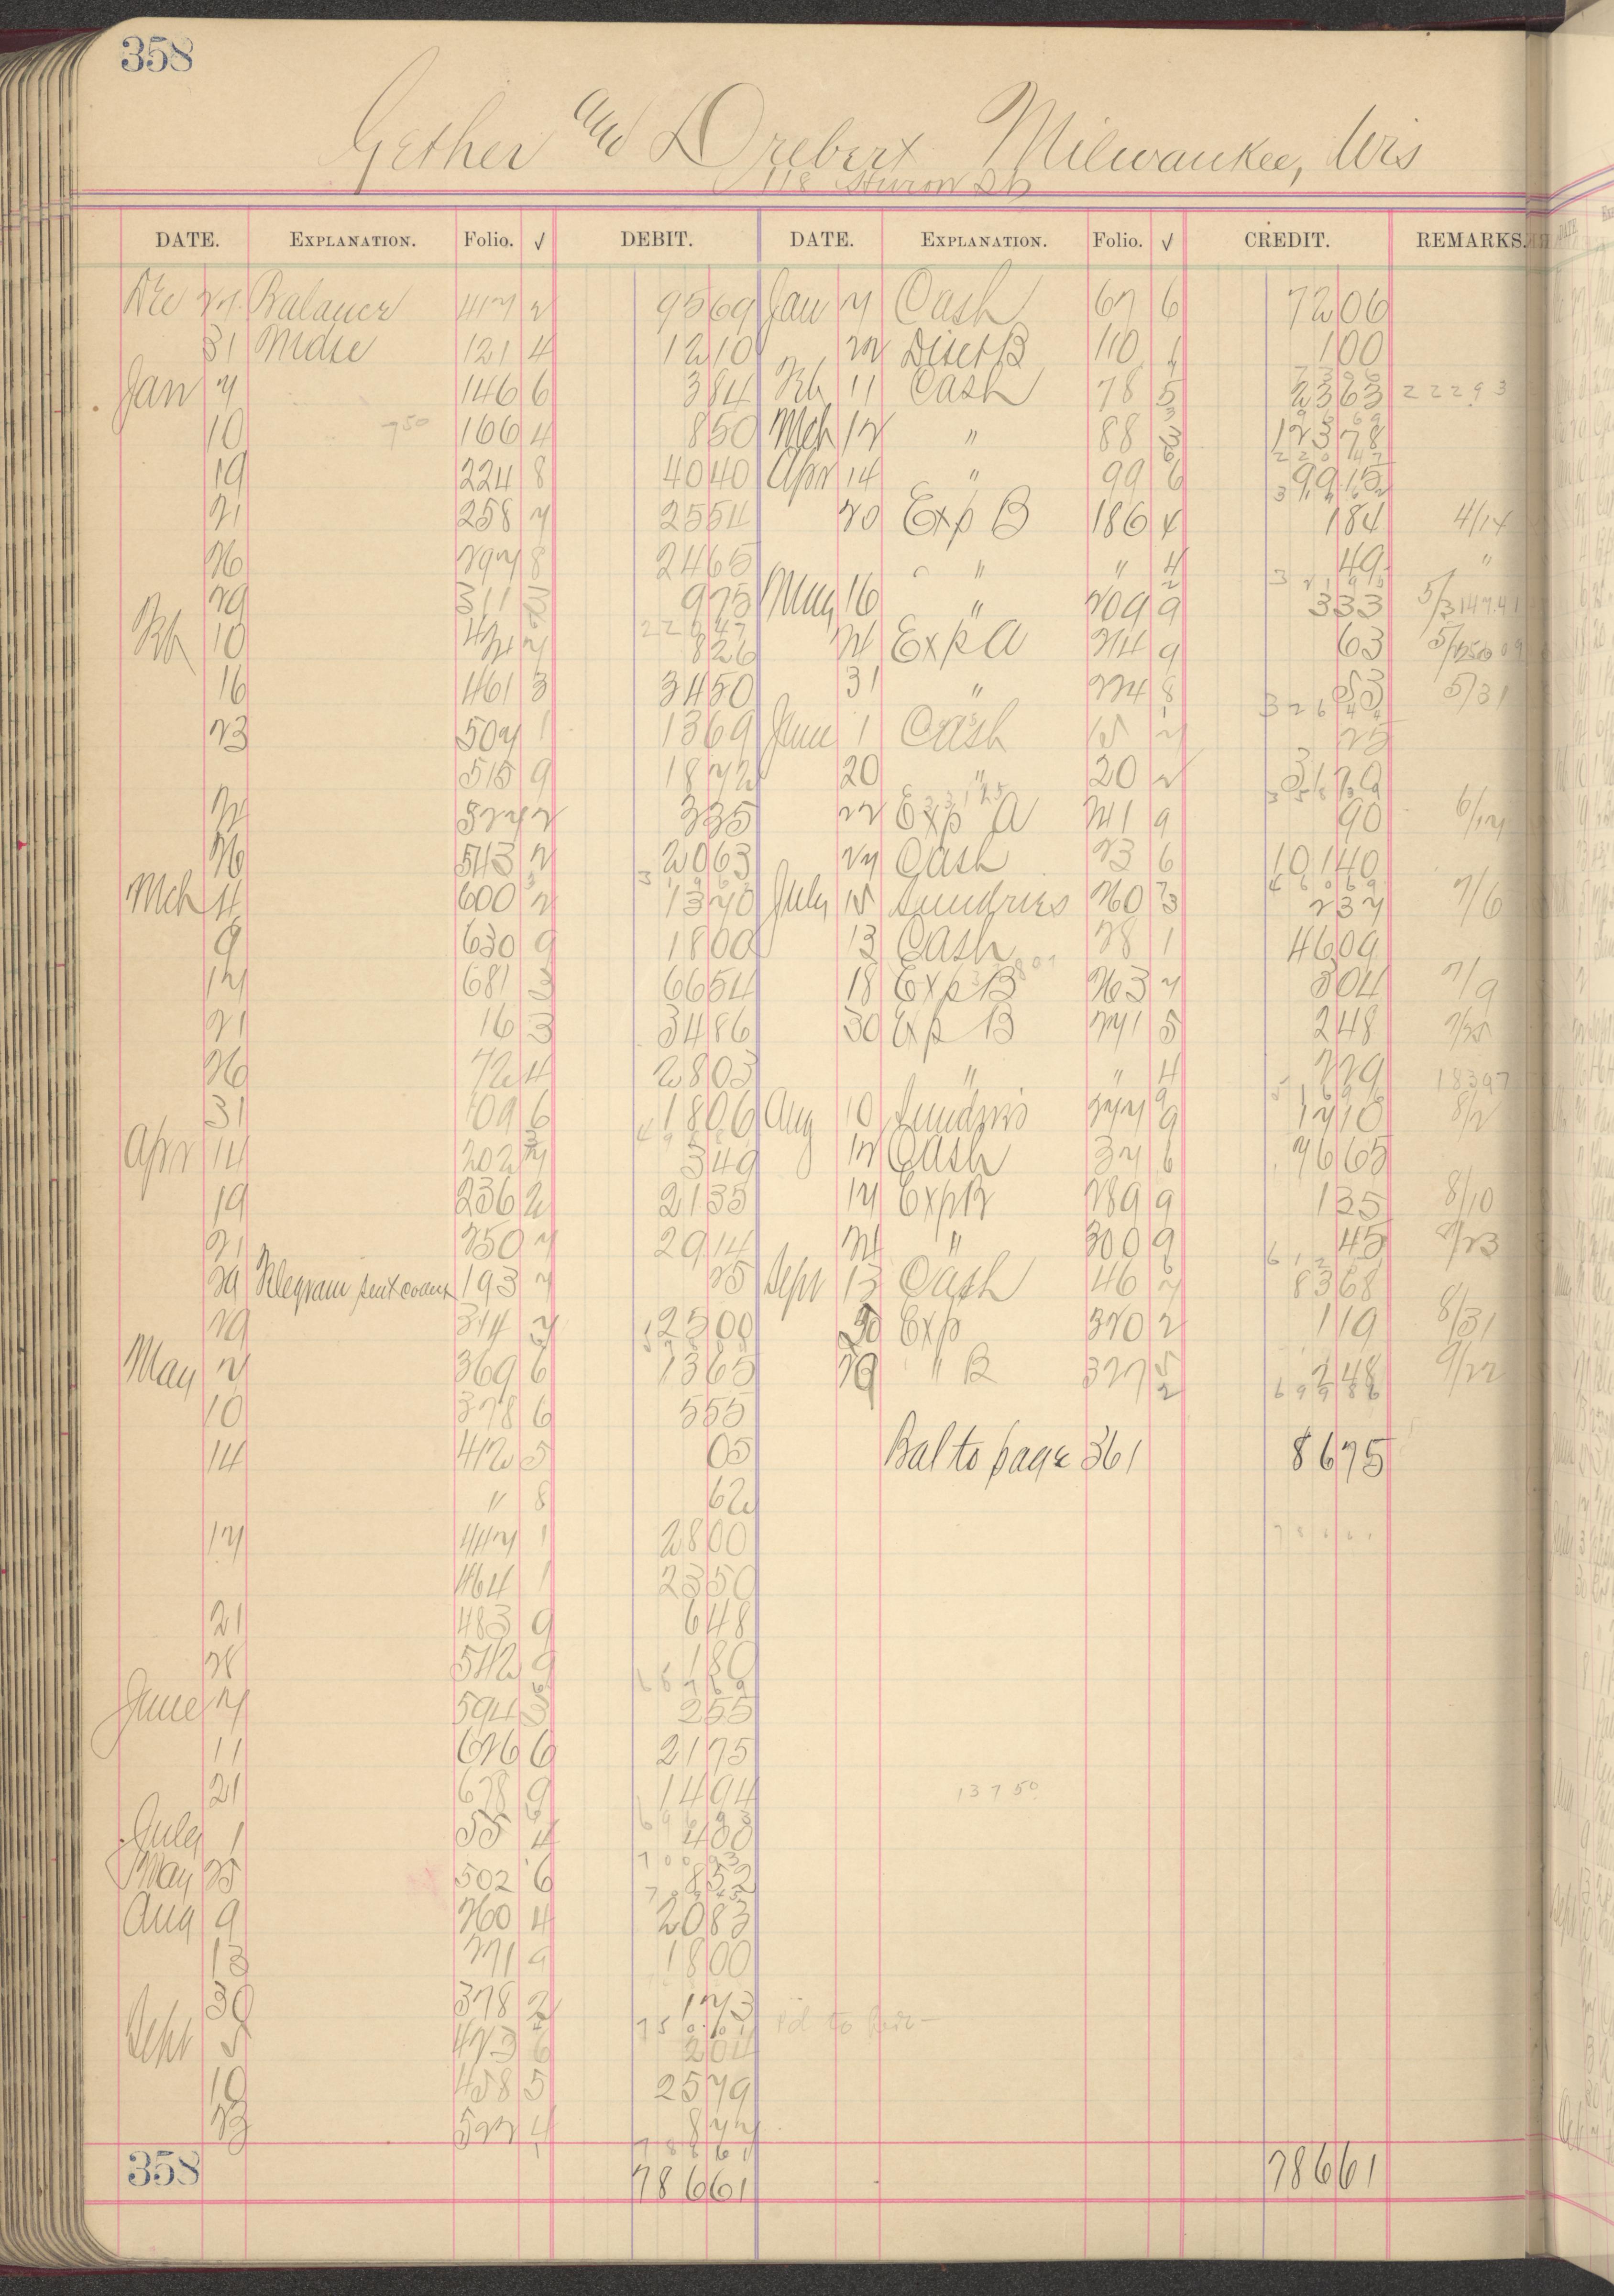 358
Gether and Drebert Milwaukee, Wis
118 Huron St
DATE. EXPLANATION. Folio. √ DEBIT. DATE. EXPLANATION. Folio. √ CREDIT. REMARKS.
Dec 27 Balance 417 2 95 69 Jan 7 Cash 67 6 72 06
31 Mdse 121 4 12 10 22 Disct B 110 1 00
Jan 7 146 6 3 84 Feb 11 Cash 78 5 23 63 222 93
10 7 50 166 4 8 50 Mch 12 " 88 3 123 78
19 224 8 40 40 Apr 14 " 99 6 99 15
21 258 7 25 54 20 Exp B 186 4 1 84 4/14
26 297 8 24 65 " " 4 49 "
29 311 9 75 May 16 " 209 9 3 33
Feb 10 421 7 8 26 24 Exp A 214 9 63
16 461 3 34 50 31 " 224 8 53 5/31
23 507 1 13 69 June 1 Cash 15 7 25
515 9 18 72 20 " 20 2 31 79
24 527 2 3 35 22 Exp A 241 9 90 6/17
26 543 2 20 63 27 Cash 23 6 101 40
Mch 4 600 2 13 70 July 15 Sundries 260 3 2 37 7/6
9 630 9 18 00 13 Cash 28 1 46 09
14 681 3 66 54 18 Exp B 263 7 3 04 7/9
21 16 3 34 86 30 Exp B 271 5 2 48 7/25
26 72 4 28 03 " " 4 2 29 183 97
31 109 6 18 06 Aug 10 Sundries 277 9 17 10 8/2
Apr 14 202 7 3 49 12 Cash 37 6 96 65
19 236 2 21 35 17 Exp B 289 9 1 35 8/10
21 250 7 29 14 24 " 300 9 45 8/23
29 Telegram sent county 193 7 25 Sept 13 Cash 46 7 83 68
29 314 7 25 00 20 Exp 320 2 1 19 8/31
May 2 369 6 13 65 29 " B 327 5 2 48 9/22
10 378 6 5 55
14 412 5 05 Bal to page 361 86 75
" 8 62
17 447 1 28 00
464 1 23 50
21 483 9 6 48
28 542 9 1 80
June 7 594 3 2 55
11 626 6 21 75
21 678 9 14 94 137 50
July 1 55 4 4 00
May 25 502 6 8 52
Aug 9 260 4 20 83
13 271 9 18 00
30 378 2 1 73
Sept 5 423 6 2 04
10 458 5 25 79
23 522 4 8 77
788 61
358 786 61 786 61